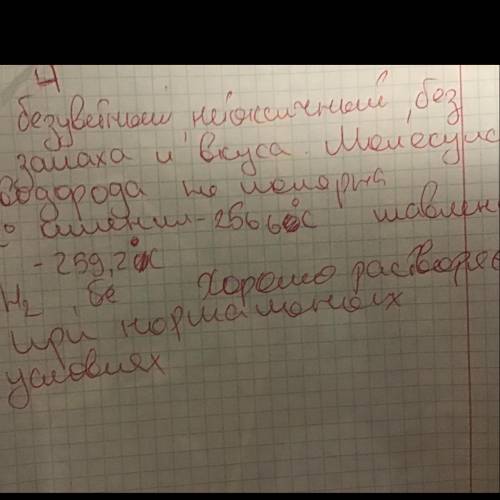 Ч
безцветный, нетоксичный, без
запаха и вкуса. Молекула
Водорода не полярна
t° кипения -256,6°С плавлен
-259,2°С
H₂, бе Хорошо растворяе
при нормальных
условиях